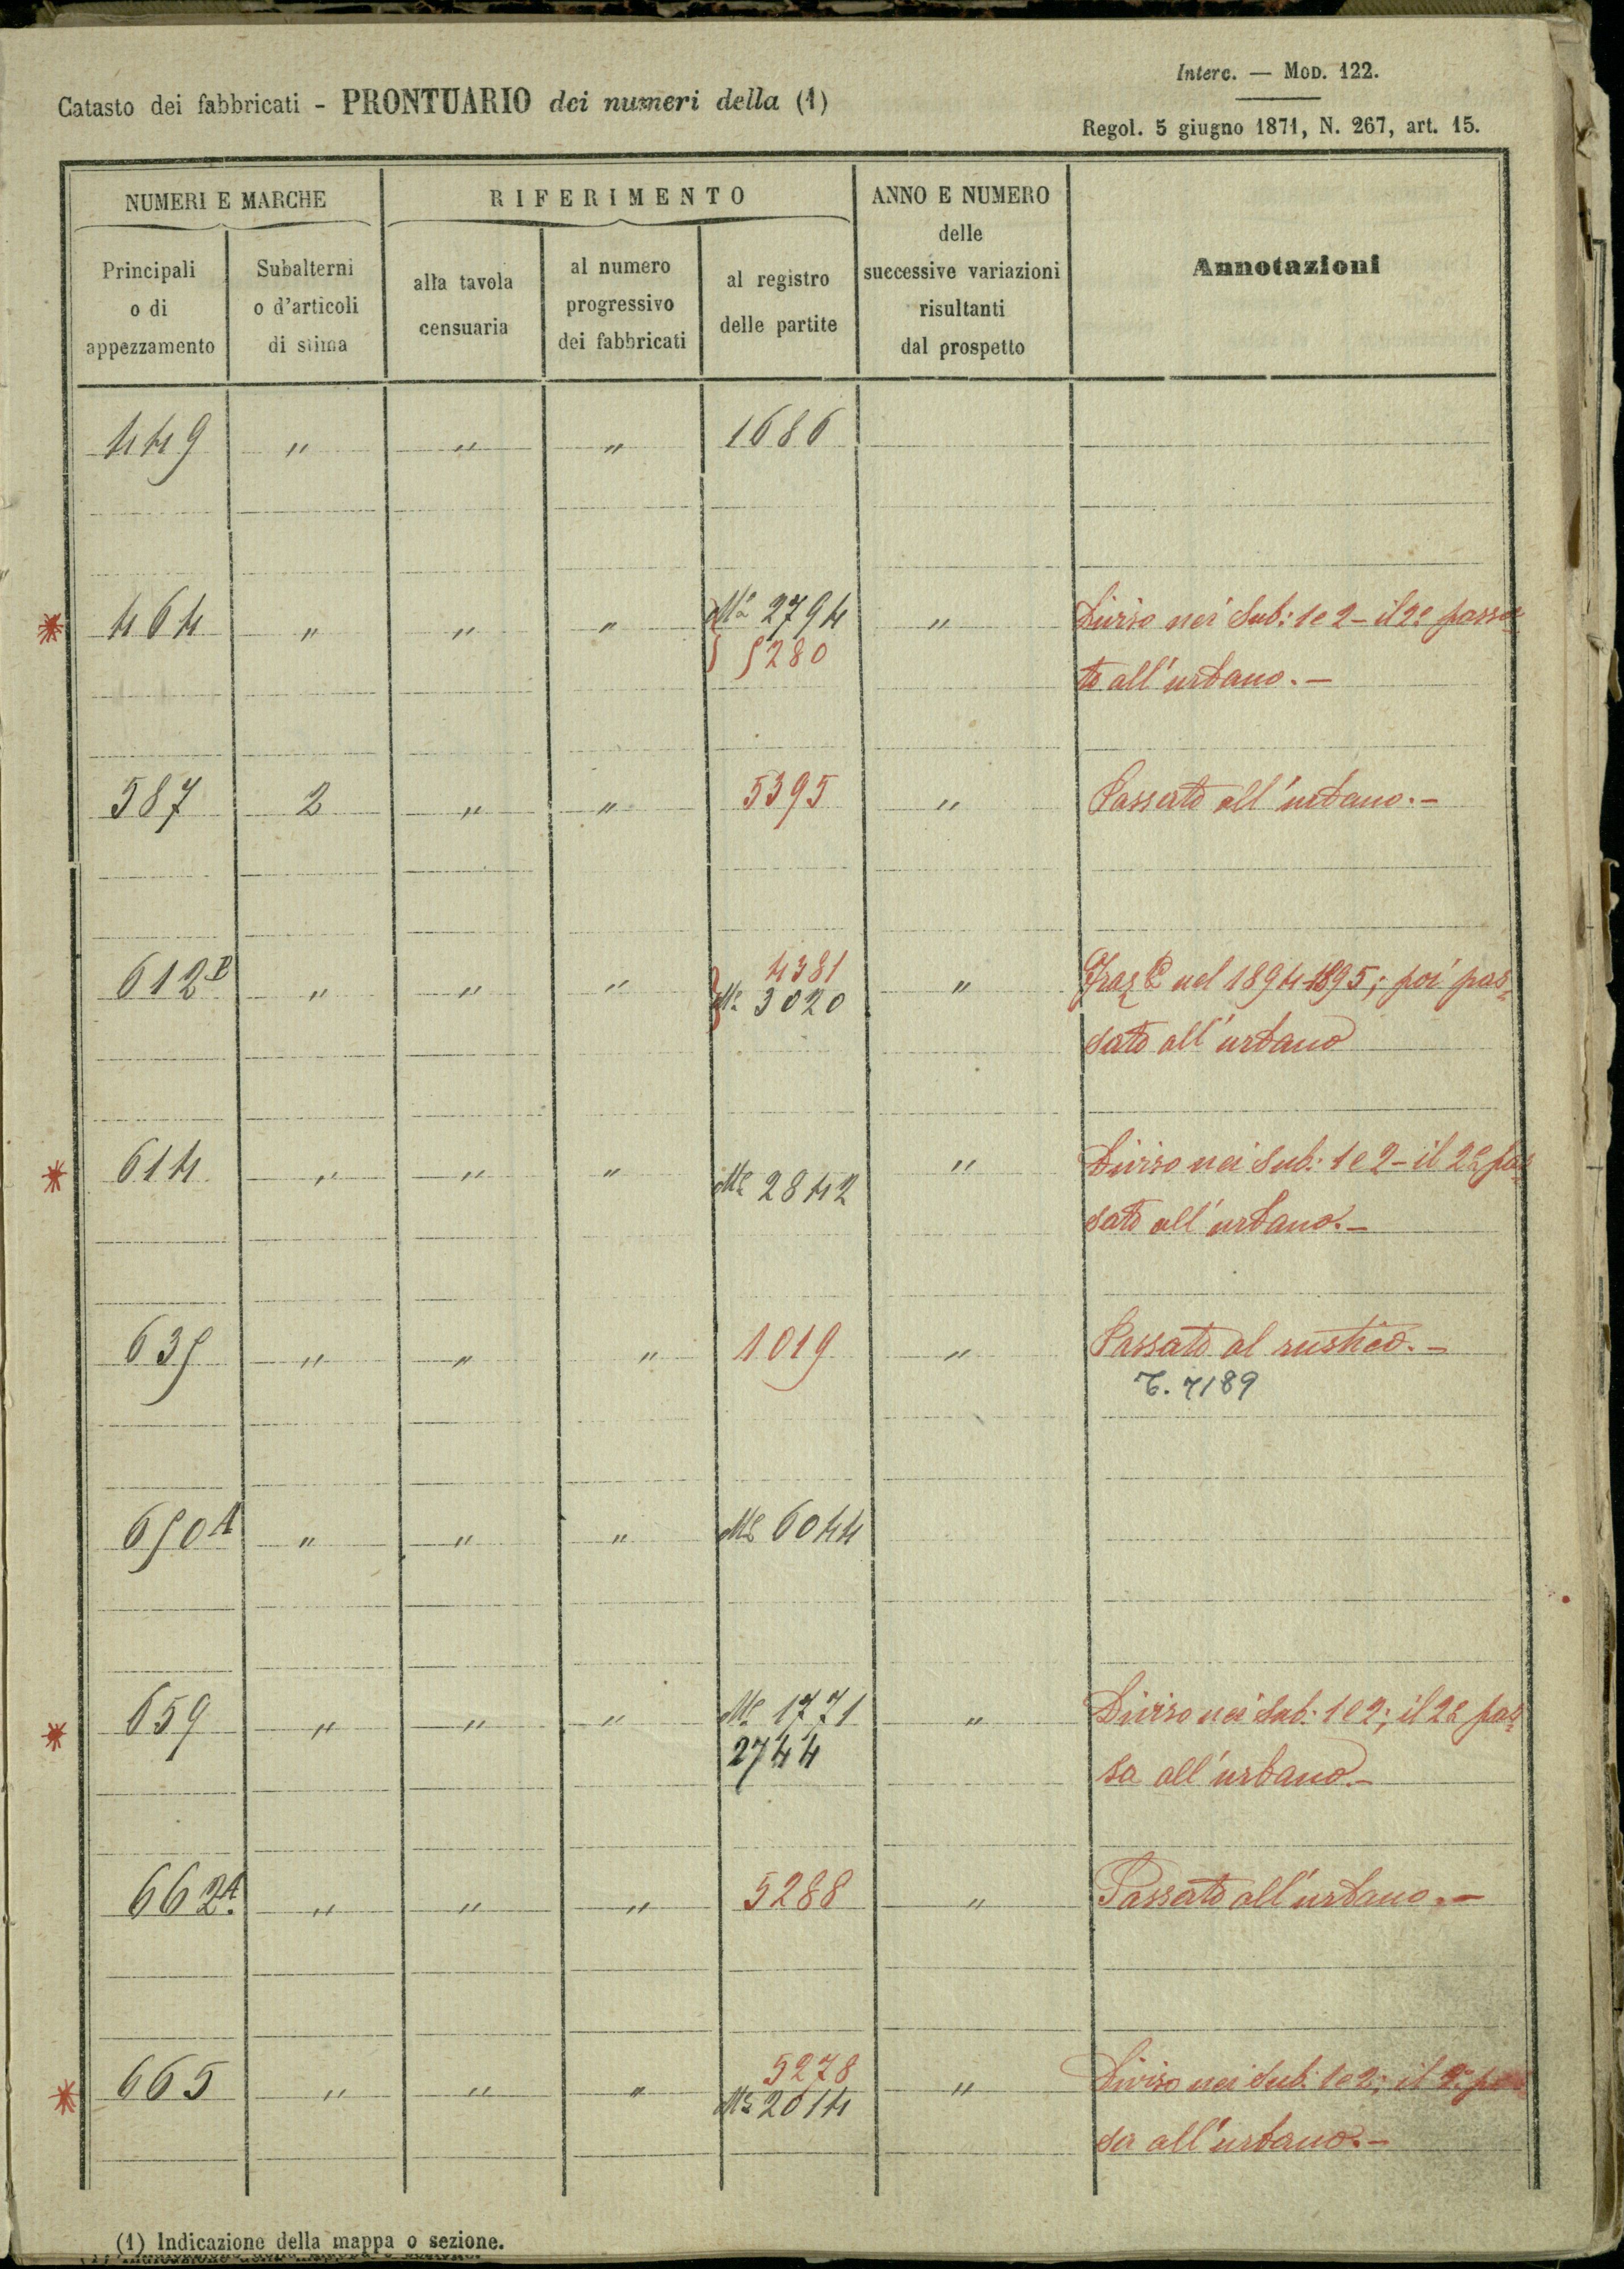 Interc. — Mod. 122.
Catasto dei fabbricati - PRONTUARIO dei numeri della (1)
Regol. 5 giugno 1871, N. 267, art. 15.
NUMERI E MARCHE
RIFERIMENTO
ANNO E NUMERO
delle
successive variazioni
risultanti
dal prospetto
Annotazioni
Principali
o di
appezzamento
Subalterni
o d'articoli
di stima
alla tavola
censuaria
al numero
progressivo
dei fabbricati
al registro
delle partite
449 " " " 1686
* 464 " " " 2794 " Diviso nei Sub: 1 e 2 - il 2º passa-
5280 to all'urbano. -
587 2 " " 5395 " Passato all'urbano. -
4381
612B " " " 3020 " nel 1894-1895; poi pas-
sato all'urbano
* 614 " " " 2842 " Diviso nei Sub: 1 e 2 - il 2º pas-
sato all'urbano. -
635 " " " 1019 " Passato al rustico. -
T. 7189
650A " " " 6044
* 659 " " " 1771 " Diviso nei Sub: 1 e 2; il 2º pas-
2744 sa all'urbano. -
662A " " " 5288 " Passato all'urbano. -
5278
* 665 " " " 2014 " Diviso nei Sub: 1 e 2; il 2º
sa all'urbano. -
(1) Indicazione della mappa o sezione.